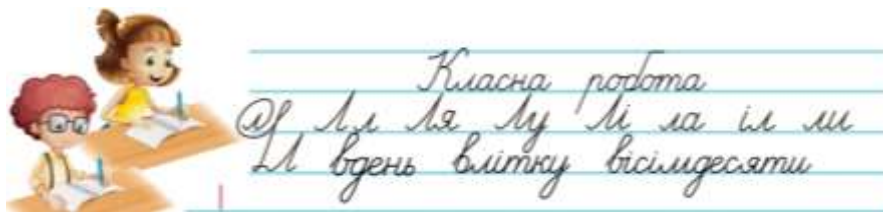 Класна робота
Л Лл Ля Лу Лі ла іл ли
вдень влітку вісімдесяти